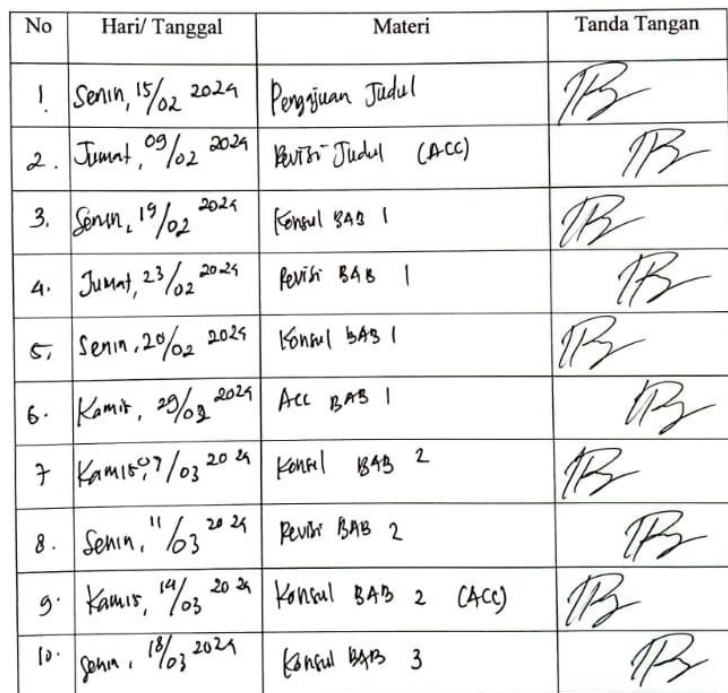 No Hari/ Tanggal Materi Tanda Tangan
1. Senin, 15/02 2024 Pengajuan Judul
2. Jumat, 09/02 2024 Revisi Judul (ACC)
3. Senin, 19/02 2024 Konsul BAB 1
4. Jumat, 23/02 2024 Revisi BAB 1
5. Senin, 20/02 2024 Konsul BAB 1
6. Kamis, 29/02 2024 Acc BAB 1
7 Kamis, 07/03 2024 Konsul BAB 2
8. Senin, 11/03 2024 Revisi BAB 2
9. Kamis, 14/03 2024 Konsul BAB 2 (ACC)
10. Senin, 18/03 2024 Konsul BAB 3